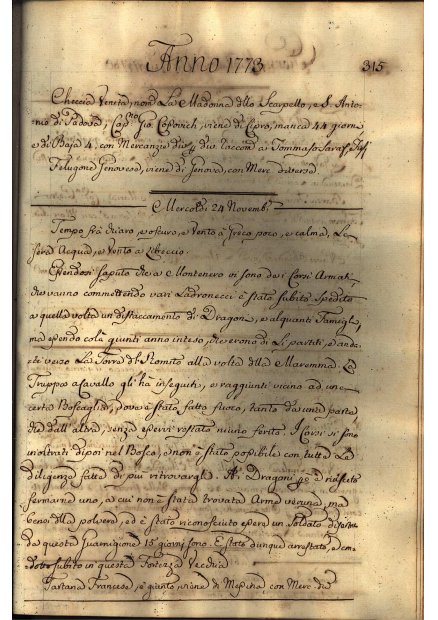 Anno 1773
315
Checcia Veneta, nom. La Madonna dllo Scarpello, e S. Anto-
nio di Padova, Cap. Gio. Cossovich, viene di Cipro, manca 44 giorni
e di Baja 4 con Mercanzie
Filugone Genovese, viene di Genova, con Merc. diverse
Mercoledì 24 Novemb.
Tempo frà chiaro, e oscuro, e Vento à Greco poco, e calma, La
sera Acqua, e Vento a Libeccio.
Essendosi saputo che a Montenero vi sono dei Corsi Armati,
che vanno commettendo vari Ladronecci è stato subito spedito
a quella volta un distaccamento di Dragoni, e alquanti Famigli,
ma essendo colà giunti anno inteso, che erono di Lì partiti, e anda-
ti verso La Torre del Romito alla volta dlla Maremma. La
Truppa a Cavallo gli ha inseguiti, e raggiunti vicino ad una
certa Boscaglia, dove è stato fatto fuoco, tanto da una parte
che dall'altra, senza esservi restato niuno ferito. I Corsi si sono
inoltrati di poi nel Bosco, e non è stato possibile con tutta La
diligenza fatta di più ritrovargli. A' Dragoni è riuscito
fermarne uno, a cui non è stata trovata Arme veruna, ma
bensì dlla polvere, ed è stato riconosciuto essere un Soldato
da questa Guarnigione 15 giorni sono. È stato dunque arrestato, e con-
dotto subito in questa Fortezza Vecchia
Tartana Francese, è giunta, viene di Messina, con Merc. che